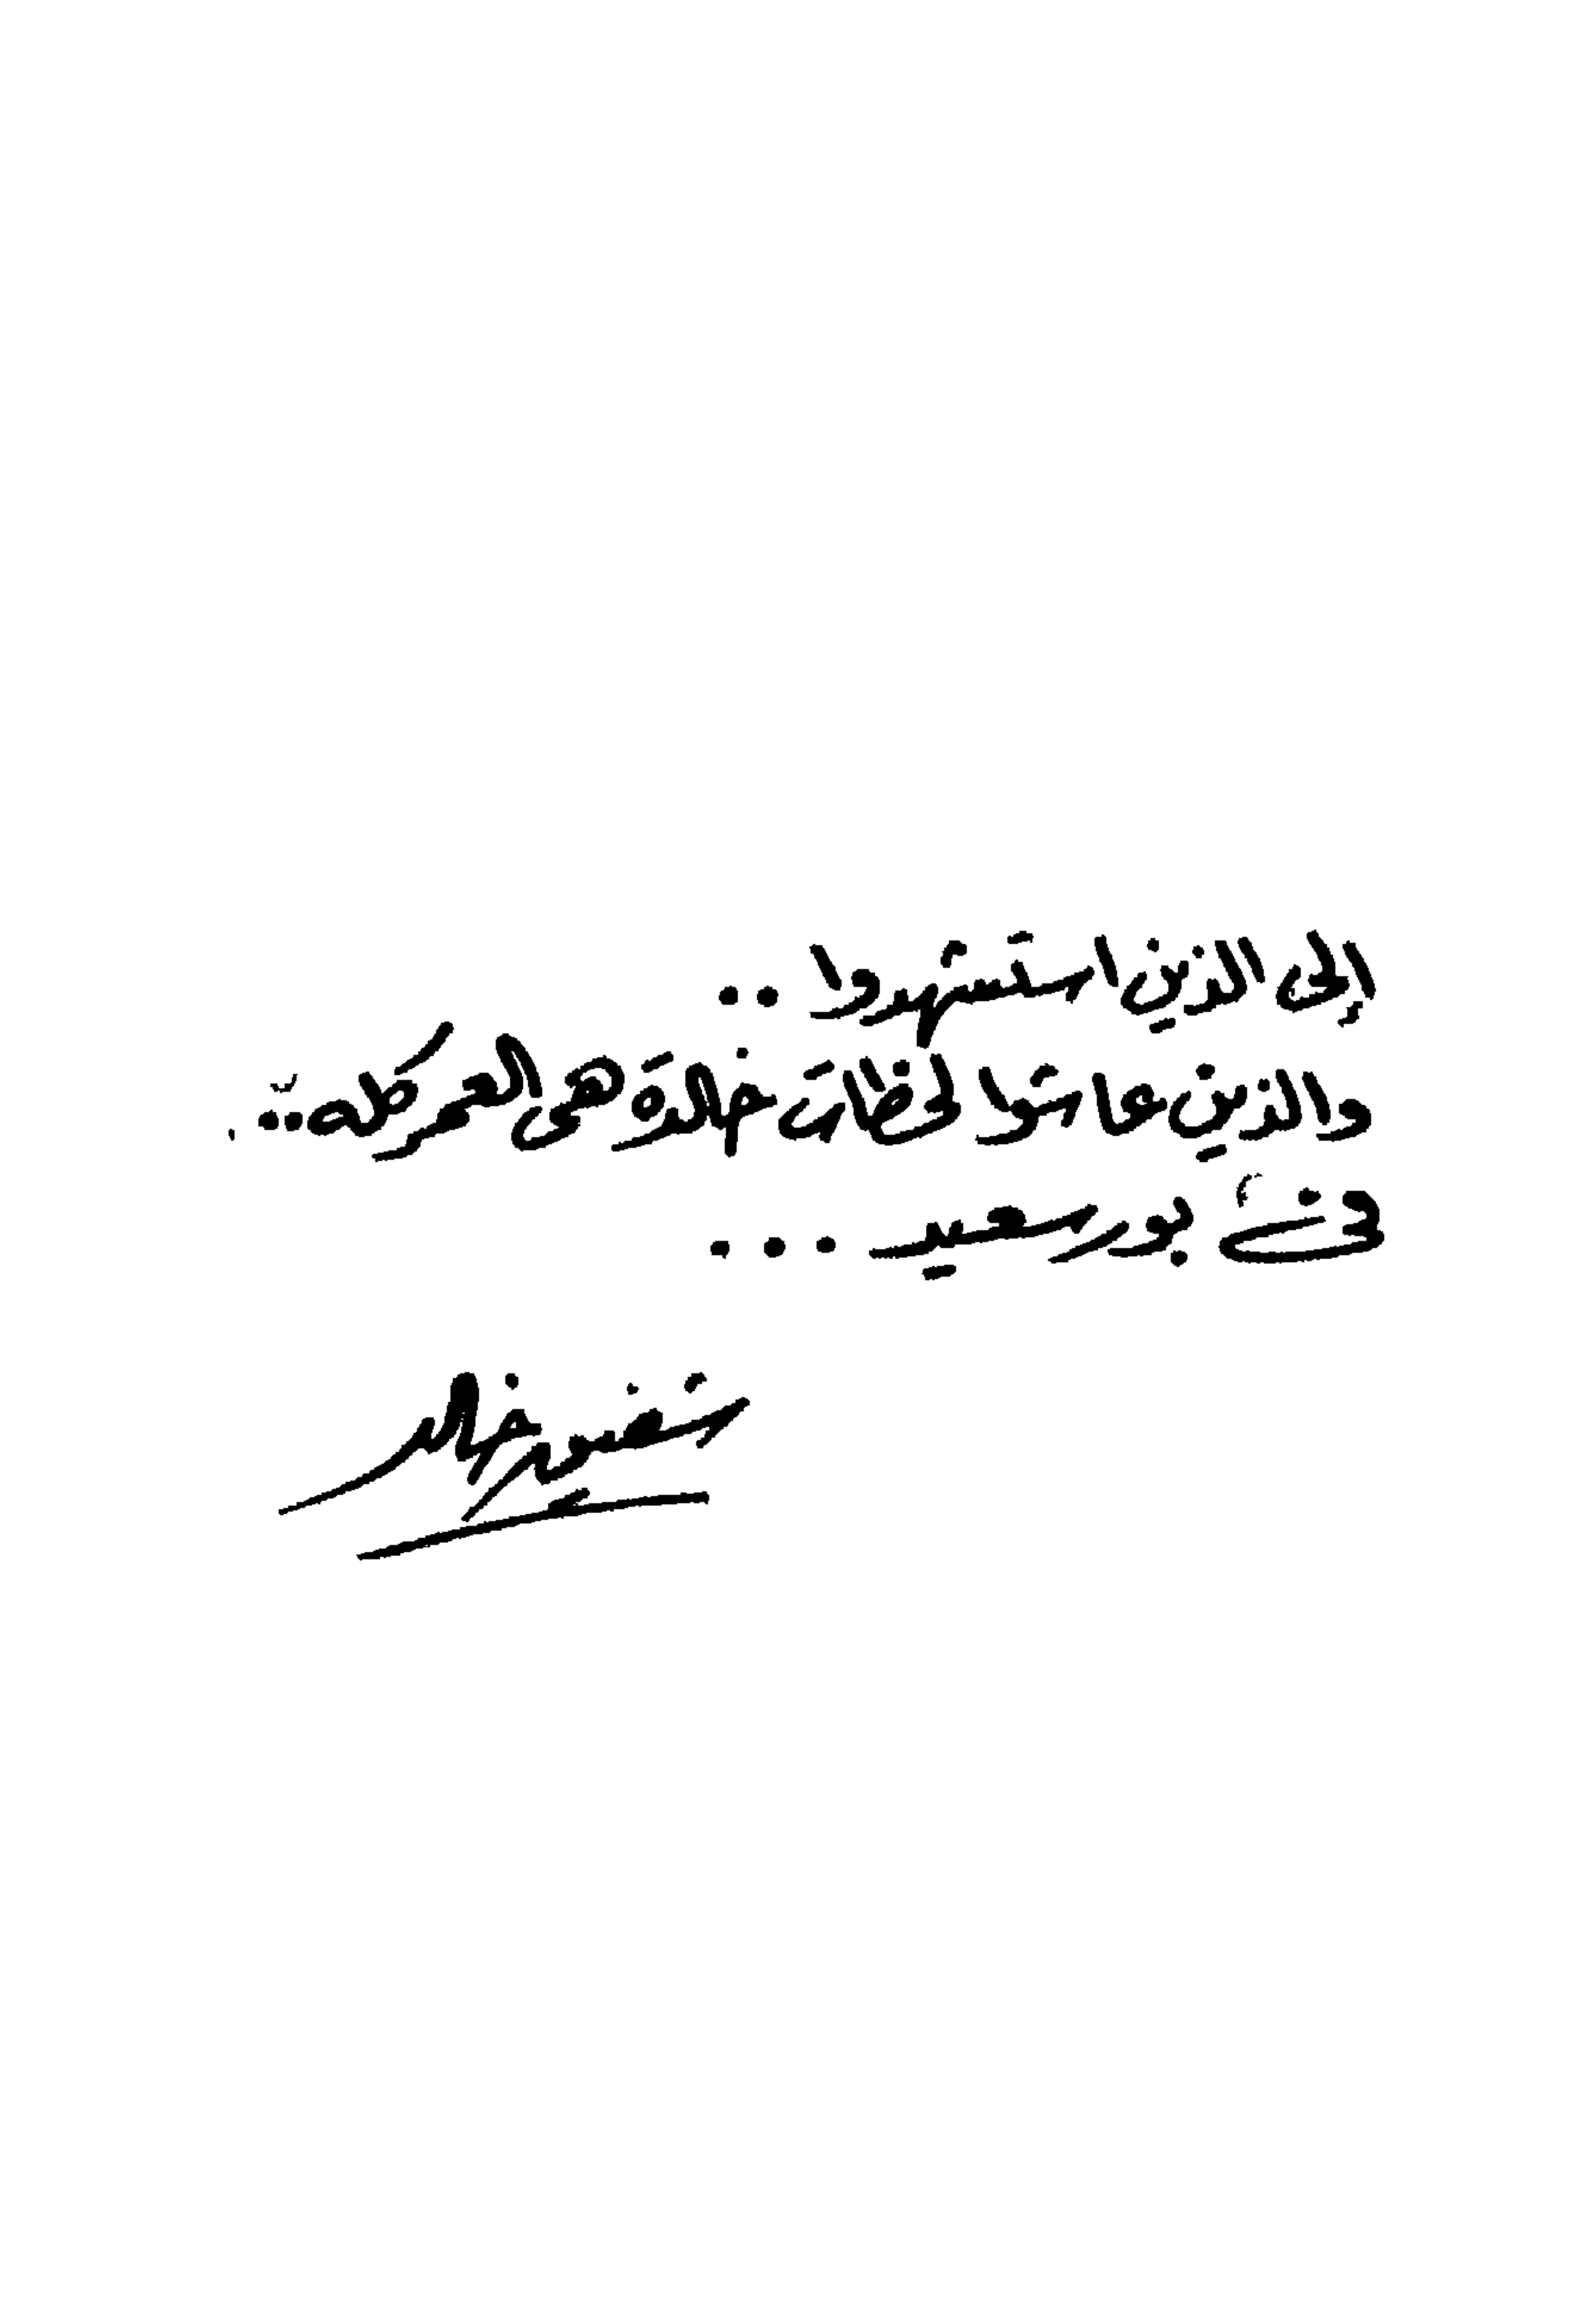 إلى الذين استشهدوا ..
والذين عاشوا لحظات خالدة هى المعركة ...
فى بورسعيد ...